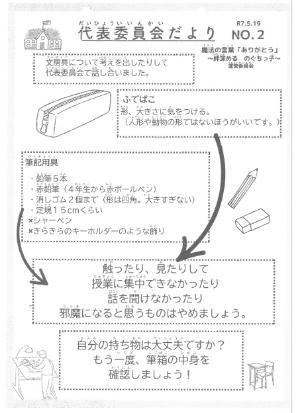 だいひょういいんかい
代表委員会だより
R7.5.19
NO.2
魔法の言葉「ありがとう」
のぐちっ子～
運営委員会
文房具について考えを出したりして
代表委員会で話し合いました。
ふでばこ
形、大きさに気をつける。
（人形や動物の形ではないほうがいいです。）
筆記用具
・鉛筆５本
・赤鉛筆（４年生から赤ボールペン）
・消しゴム２個まで（形は四角。大きすぎない）
・定規１５ｃｍくらい
×シャーペン
×きらきらのキーホルダーのような飾り
触ったり、見たりして
授業に集中できなかったり
話を聞けなかったり
邪魔になると思うものはやめましょう。
自分の持ち物は大丈夫ですか？
もう一度、筆箱の中身を
確認しましょう！